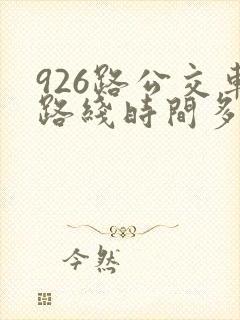 926路公交車
路綫時間多
今然